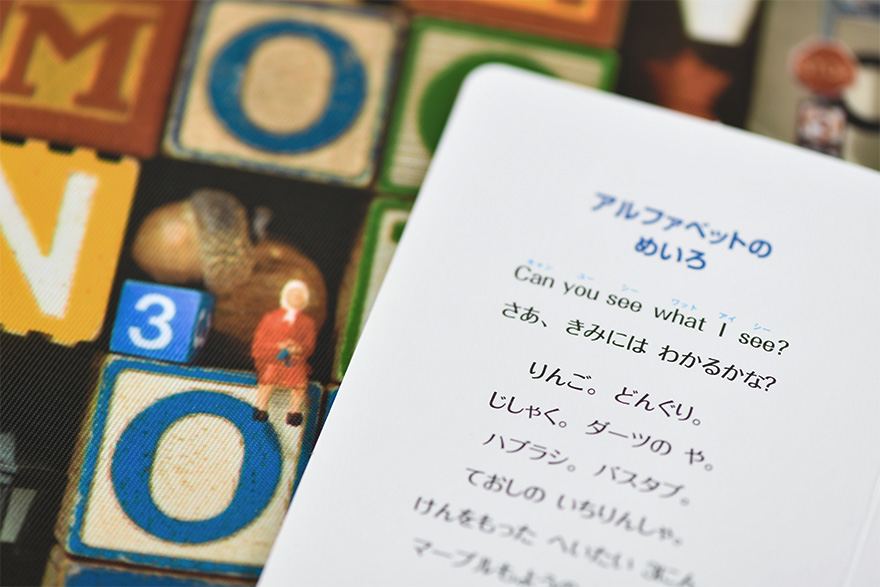 M
O
N
3
O
アルファベットの
めいろ
キャン ユー シー ワット アイ シー
Can you see what I see?
さあ、きみには わかるかな?
りんご。どんぐり。
じしゃく。ダーツの や。
ハブラシ。バスタブ。
ておしの いちりんしゃ。
けんをもった へいたい
マーブルもようの